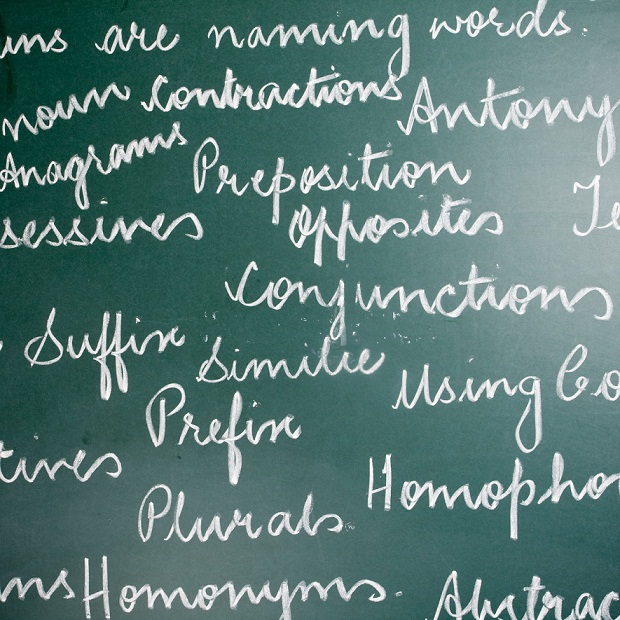 uns are naming words.
noun contractions Antony
Anagrams Preposition
sessives opposites Te
Conjunctions
Suffix Similie Using Co
Prefix
tives Homopho
Plurals
ms Homonyms. Abstrac